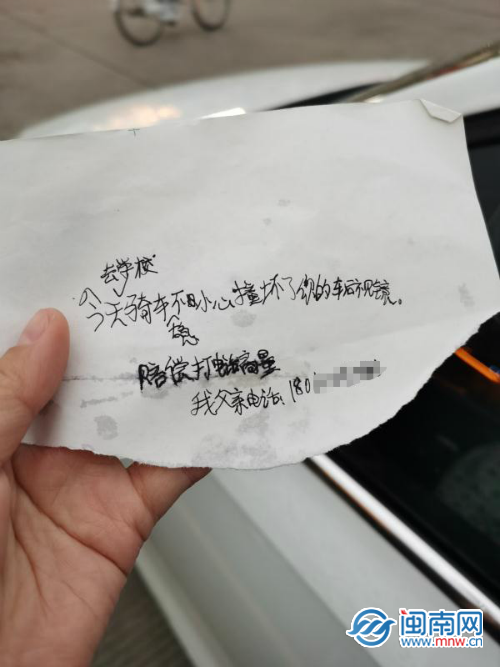 去学校
今天骑车不小心撞坏了你的车后视镜。
赔偿打电话商量
我父亲电话：180
闽南网
www.mnw.cn